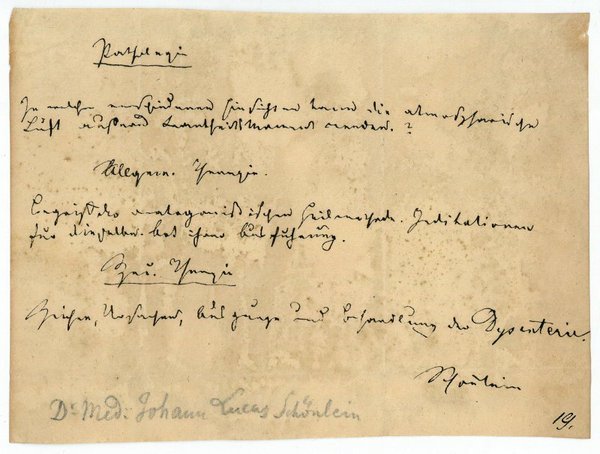 Pathologie
In welcher verschiedenen Hinsichten kann die atmosphärische
Luft äußeres Krankheitsmoment werden?
Allgem. Therapie.
Begriff der antagonistischen Heilmethode. Inditationen
für dieselbe bei ihrer Ausführung.
Spez. Therapie
Zeichen, Ursachen, Ausgänge und Behandlung der Dysenterie.
Schönlein
Dr Med: Johann Lucas Schönlein
19.